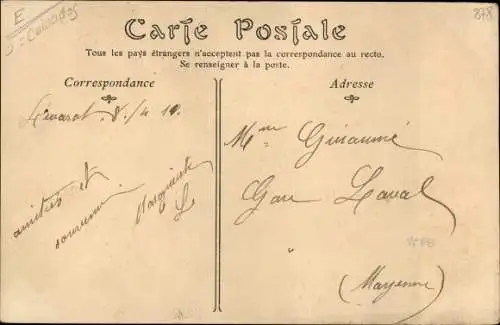 E
= Calvados
878
Carte Postale
Tous les pays étrangers n'acceptent pas la correspondance au recto.
Se renseigner à la poste.
Correspondance
Adresse
Livarot 8/4 10
amitiés et
Marguerite
Mme Guiaumé
Gare Laval
"
(Mayenne)